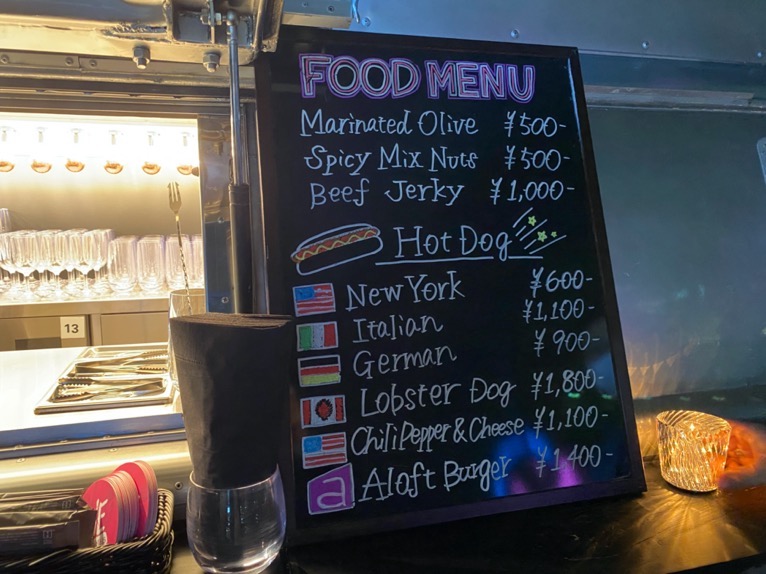 FOOD MENU
Marinated Olive ¥500-
Spicy Mix Nuts ¥500-
Beef Jerky ¥1,000-
Hot Dog
New York ¥600-
Italian ¥1,100-
German ¥900-
Lobster Dog ¥1,800-
Chili Pepper & Cheese ¥1,100-
a Aloft Burger ¥1,400-
13